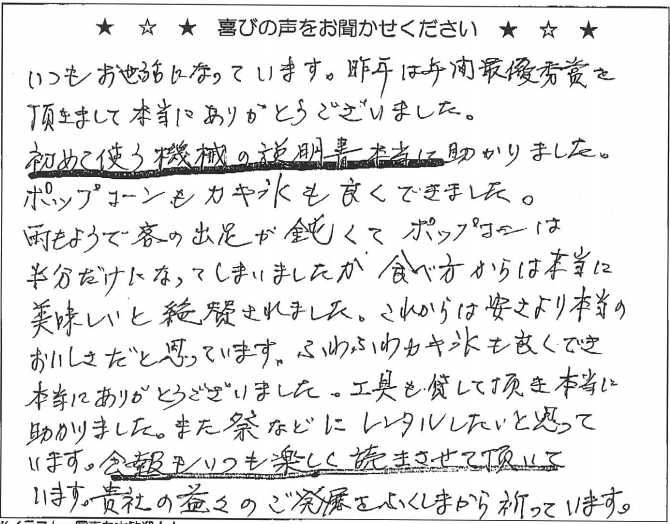 ★ ☆ ★ 喜びの声をお聞かせください ★ ☆ ★
いつもお世話になっています。昨年は年間最優秀賞を
頂きまして本当にありがとうございました。
初めて使う機械の説明書本当に助かりました。
ポップコーンもカキ氷も良くできました。
雨もようで客の出足が鈍くてポップコーンは
半分だけになってしまいましたが食べ方からは本当に
美味しいと絶賛されました。これからは安さより本当の
おいしさだと思っています。ふわふわカキ氷も良くでき
本当にありがとうございました。工具も貸して頂き本当に
助かりました。また祭などにレンタルしたいと思って
います。会報もいつも楽しく読まさせて頂いて
います。貴社の益々のご発展をふくしまから祈っています。